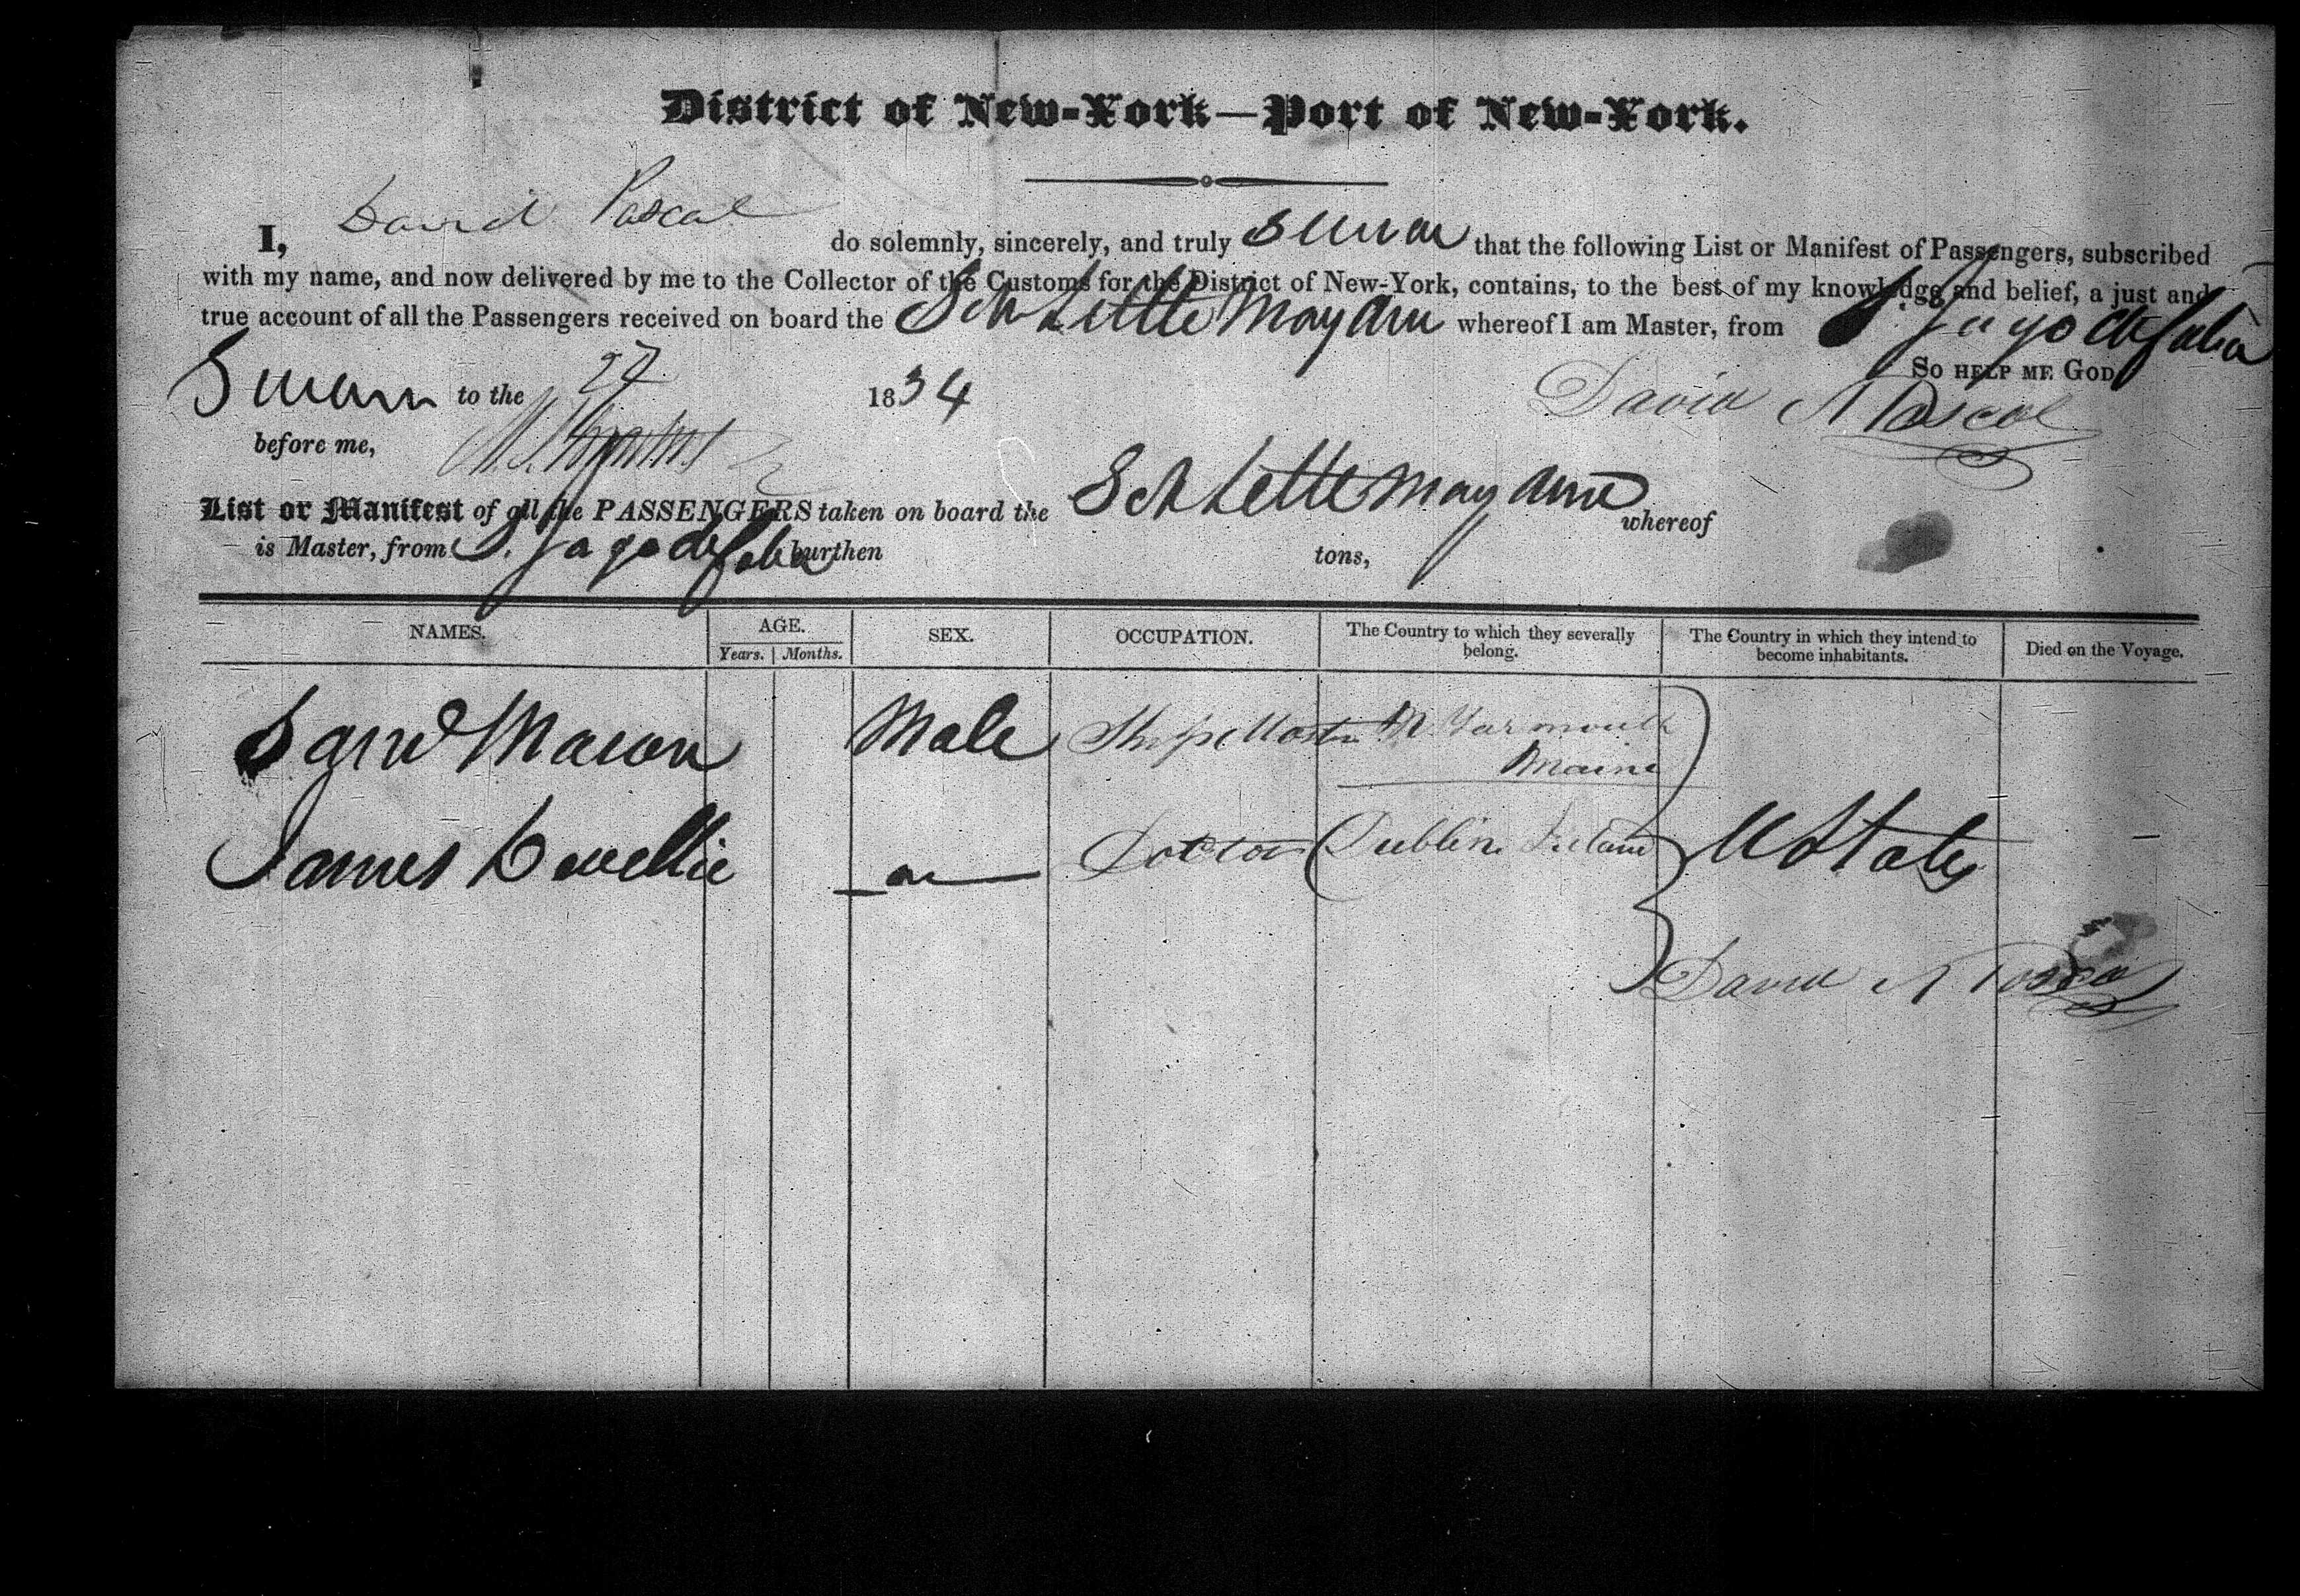 District of New-York—Port of New-York.
I, David Pascal do solemnly, sincerely, and truly swear that the following List or Manifest of Passengers, subscribed
with my name, and now delivered by me to the Collector of the Customs for the District of New-York, contains, to the best of my knowledge and belief, a just and
true account of all the Passengers received on board the Sch whereof I am Master, from S. Jago de Cuba
So help me God,
Sworn to the 27 1834 David N Pascal
before me,
List or Manifest of all the PASSENGERS taken on board the Sch whereof
is Master, from S. Jago de Cuba burthen tons,
NAMES. AGE. SEX. OCCUPATION. The Country to which they severally belong. The Country in which they intend to become inhabitants. Died on the Voyage.
Years. Months.
Male Ship Master N. Yarmouth
Maine
James Doctor Dublin Ireland U States
David N Pascal